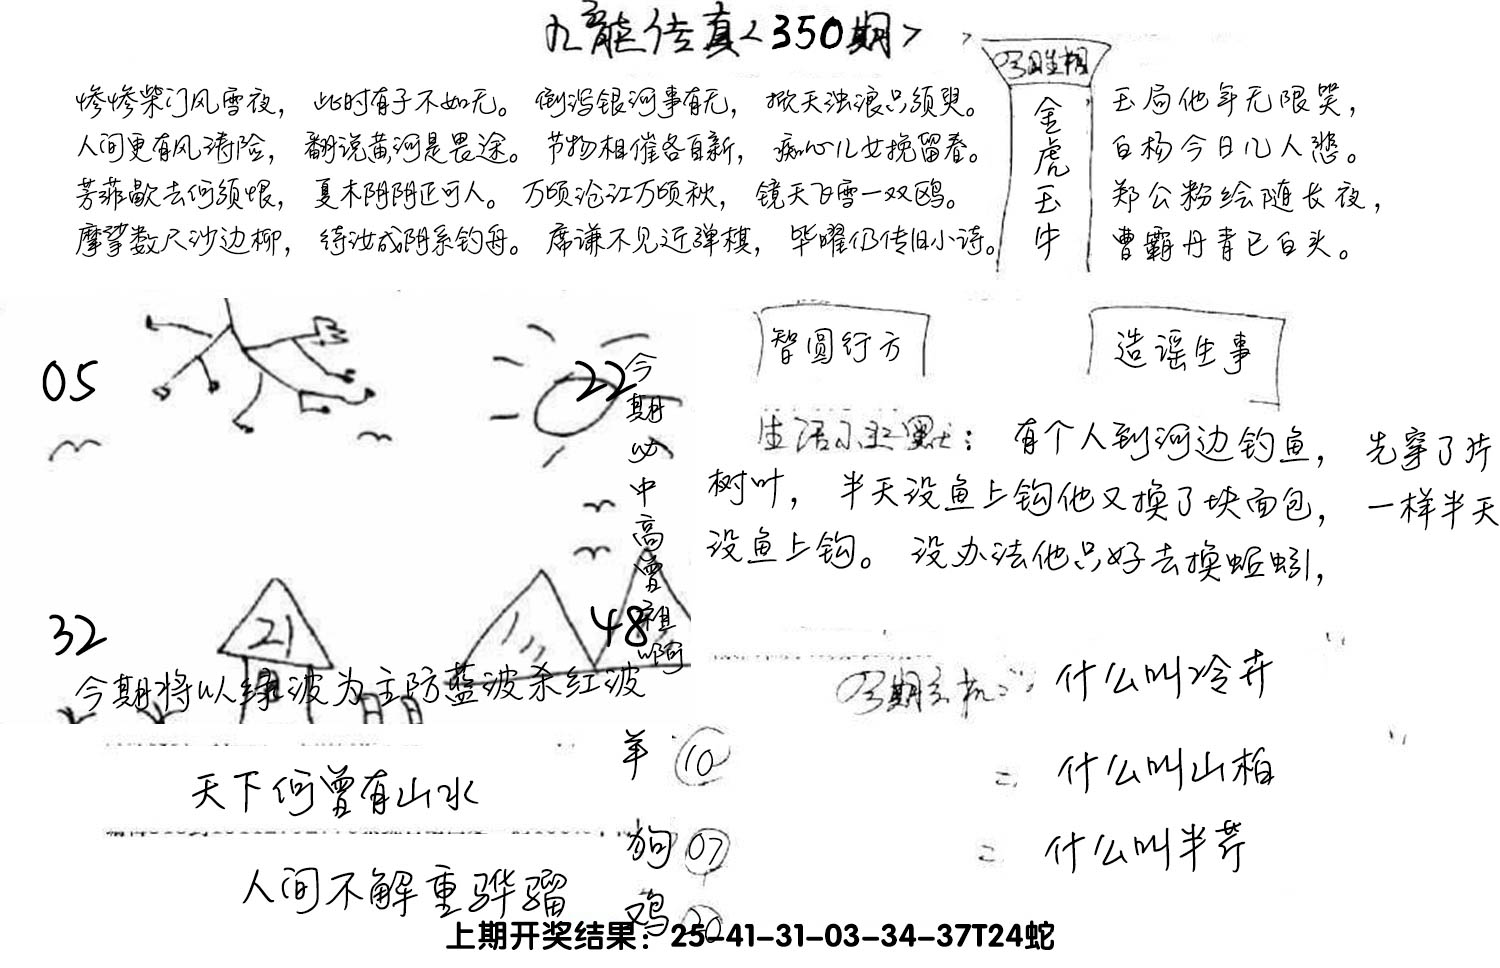 九龙传真<350期>
惨惨柴门风雪夜，此时有子不如无。倒泻银河事有无，掀天浊浪只须臾。
人间更有风涛险，翻说黄河是畏途。节物相催各自新，痴心儿女挽留春。
芳菲歇去何须恨，夏木阴阴正可人。万顷沧江万顷秋，镜天飞雪一双鸥。
摩挲数尺沙边柳，待汝成阴系钓舟。席谦不见近弹棋，毕曜仍传旧小诗。
今期生相
金虎玉牛
玉局他年无限笑，
白杨今日几人悲。
郑公粉绘随长夜，
曹霸丹青已白头。
05
22
32
48
21
今期必中高曾祖啊
今期将以绿波为主防蓝波杀红波
智圆行方
造谣生事
生活小幽默：有个人到河边钓鱼，先穿了片
树叶，半天没鱼上钩他又换了块面包，一样半天
没鱼上钩。没办法他只好去换蚯蚓，
今期玄机：什么叫冷卉
二 什么叫山柏
二 什么叫半芹
天下何曾有山水
人间不解重骅骝
羊 10
狗 07
鸡 20
上期开奖结果：25-41-31-03-34-37T24蛇